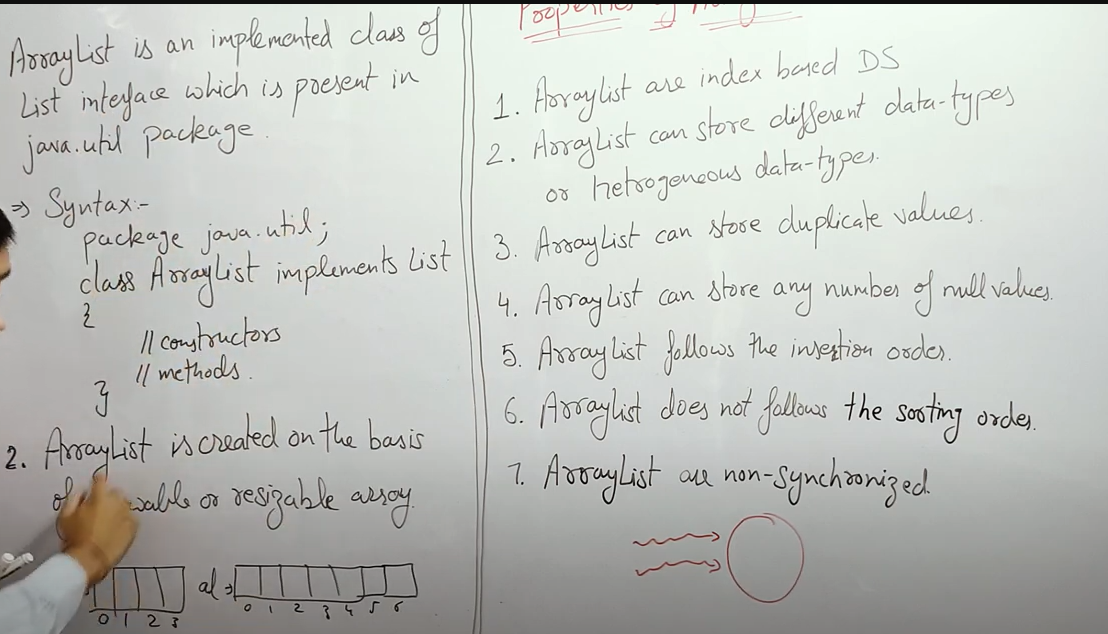 ArrayList is an implemented class of
List interface which is present in
java.util package.
⇒ Syntax:-
package java.util;
class ArrayList implements List
{
// constructors
// methods.
}
2. ArrayList is created on the basis
of or resizable array.
0 1 2 3
al ⇒
0 1 2 3 4 5 6
Properties of
1. ArrayList are index based DS
2. ArrayList can store different data-types
or hetrogeneous data-types.
3. ArrayList can store duplicate values.
4. ArrayList can store any number of null values.
5. ArrayList follows the insertion order.
6. ArrayList does not follows the sorting order.
7. ArrayList are non-synchronized.